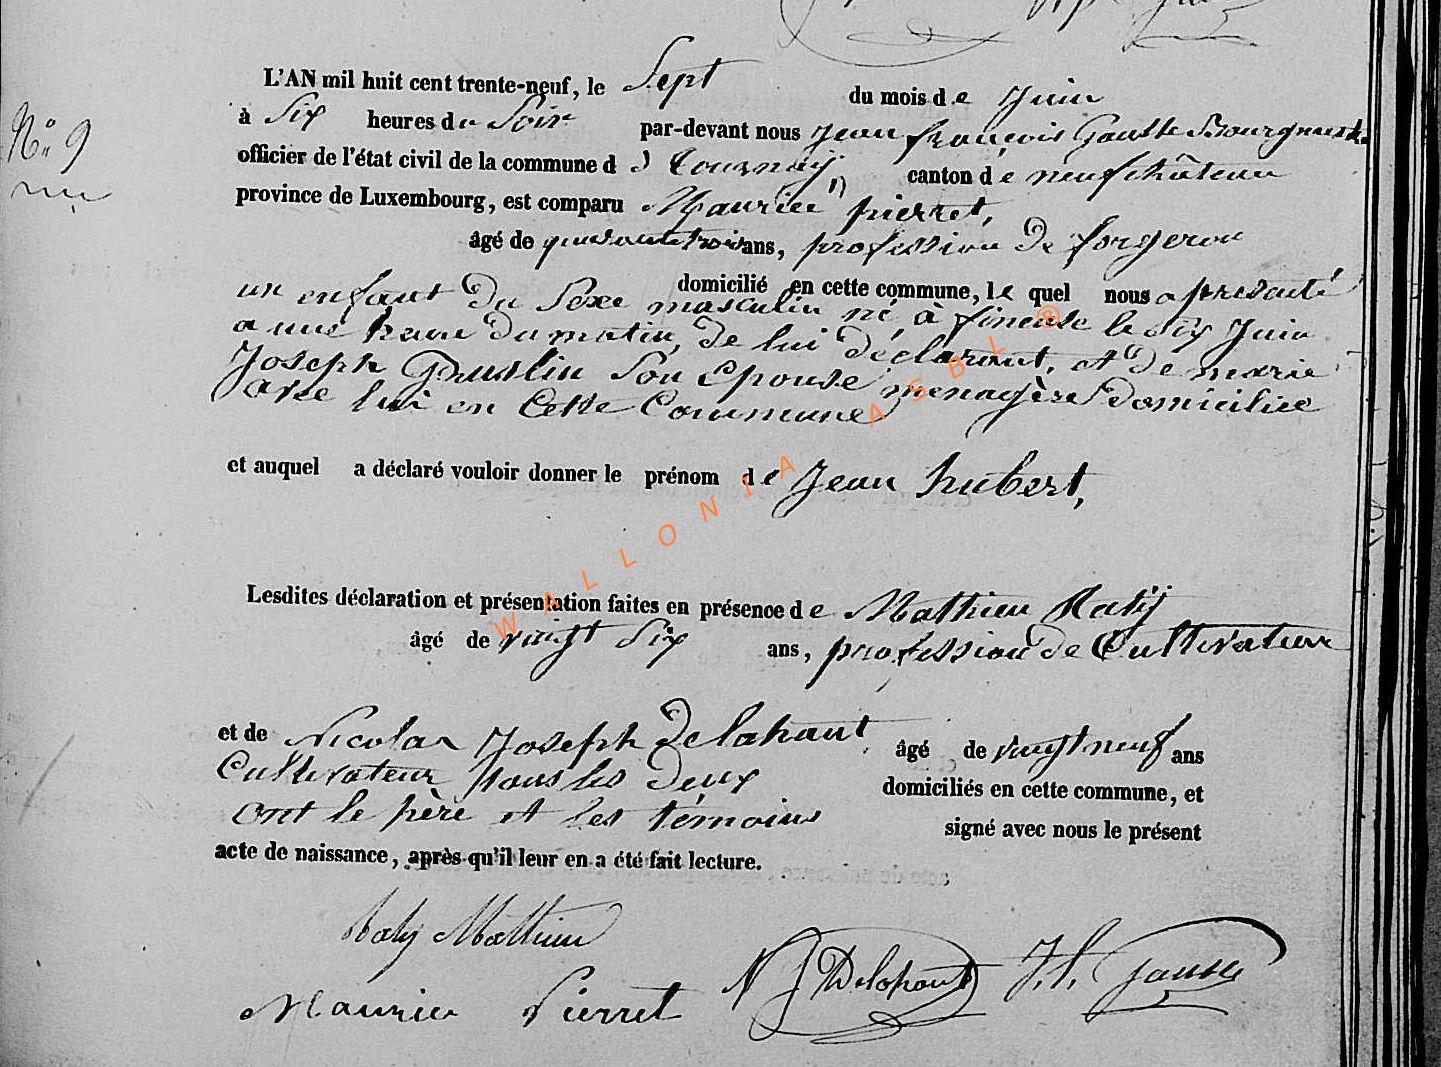 L'AN mil huit cent trente-neuf, le Sept du mois de Juin
N° 9
à Six heures du Soir par-devant nous Jean françois Gausse Bourgmestre
officier de l'état civil de la commune d Tournay, canton de neufchâteau
province de Luxembourg, est comparu Maurice pierret,
âgé de quarante trois ans, profession de forgeron
domicilié en cette commune, le quel nous a présenté
un enfant du Sexe masculin né à fineuse le Six Juin
a une heure du matin, de lui déclarant, et de marie
Joseph Son Epouse menagère domiciliée
avec lui en Cette Commune
et auquel a déclaré vouloir donner le prénom de Jean hubert,
Lesdites déclaration et présentation faites en présence de Mathieu Raty
âgé de vingt Six ans, profession de Cultivateur
et de Nicolas Joseph Delahaut âgé de vingt neuf ans
Cultivateur tous les deux domiciliés en cette commune, et
ont le père et les témoins signé avec nous le présent
acte de naissance, après qu'il leur en a été fait lecture.
Raty Mathieu
N J Delahaut J. f. Gausse
Maurice Pierret
WALLONIA ASBL ®